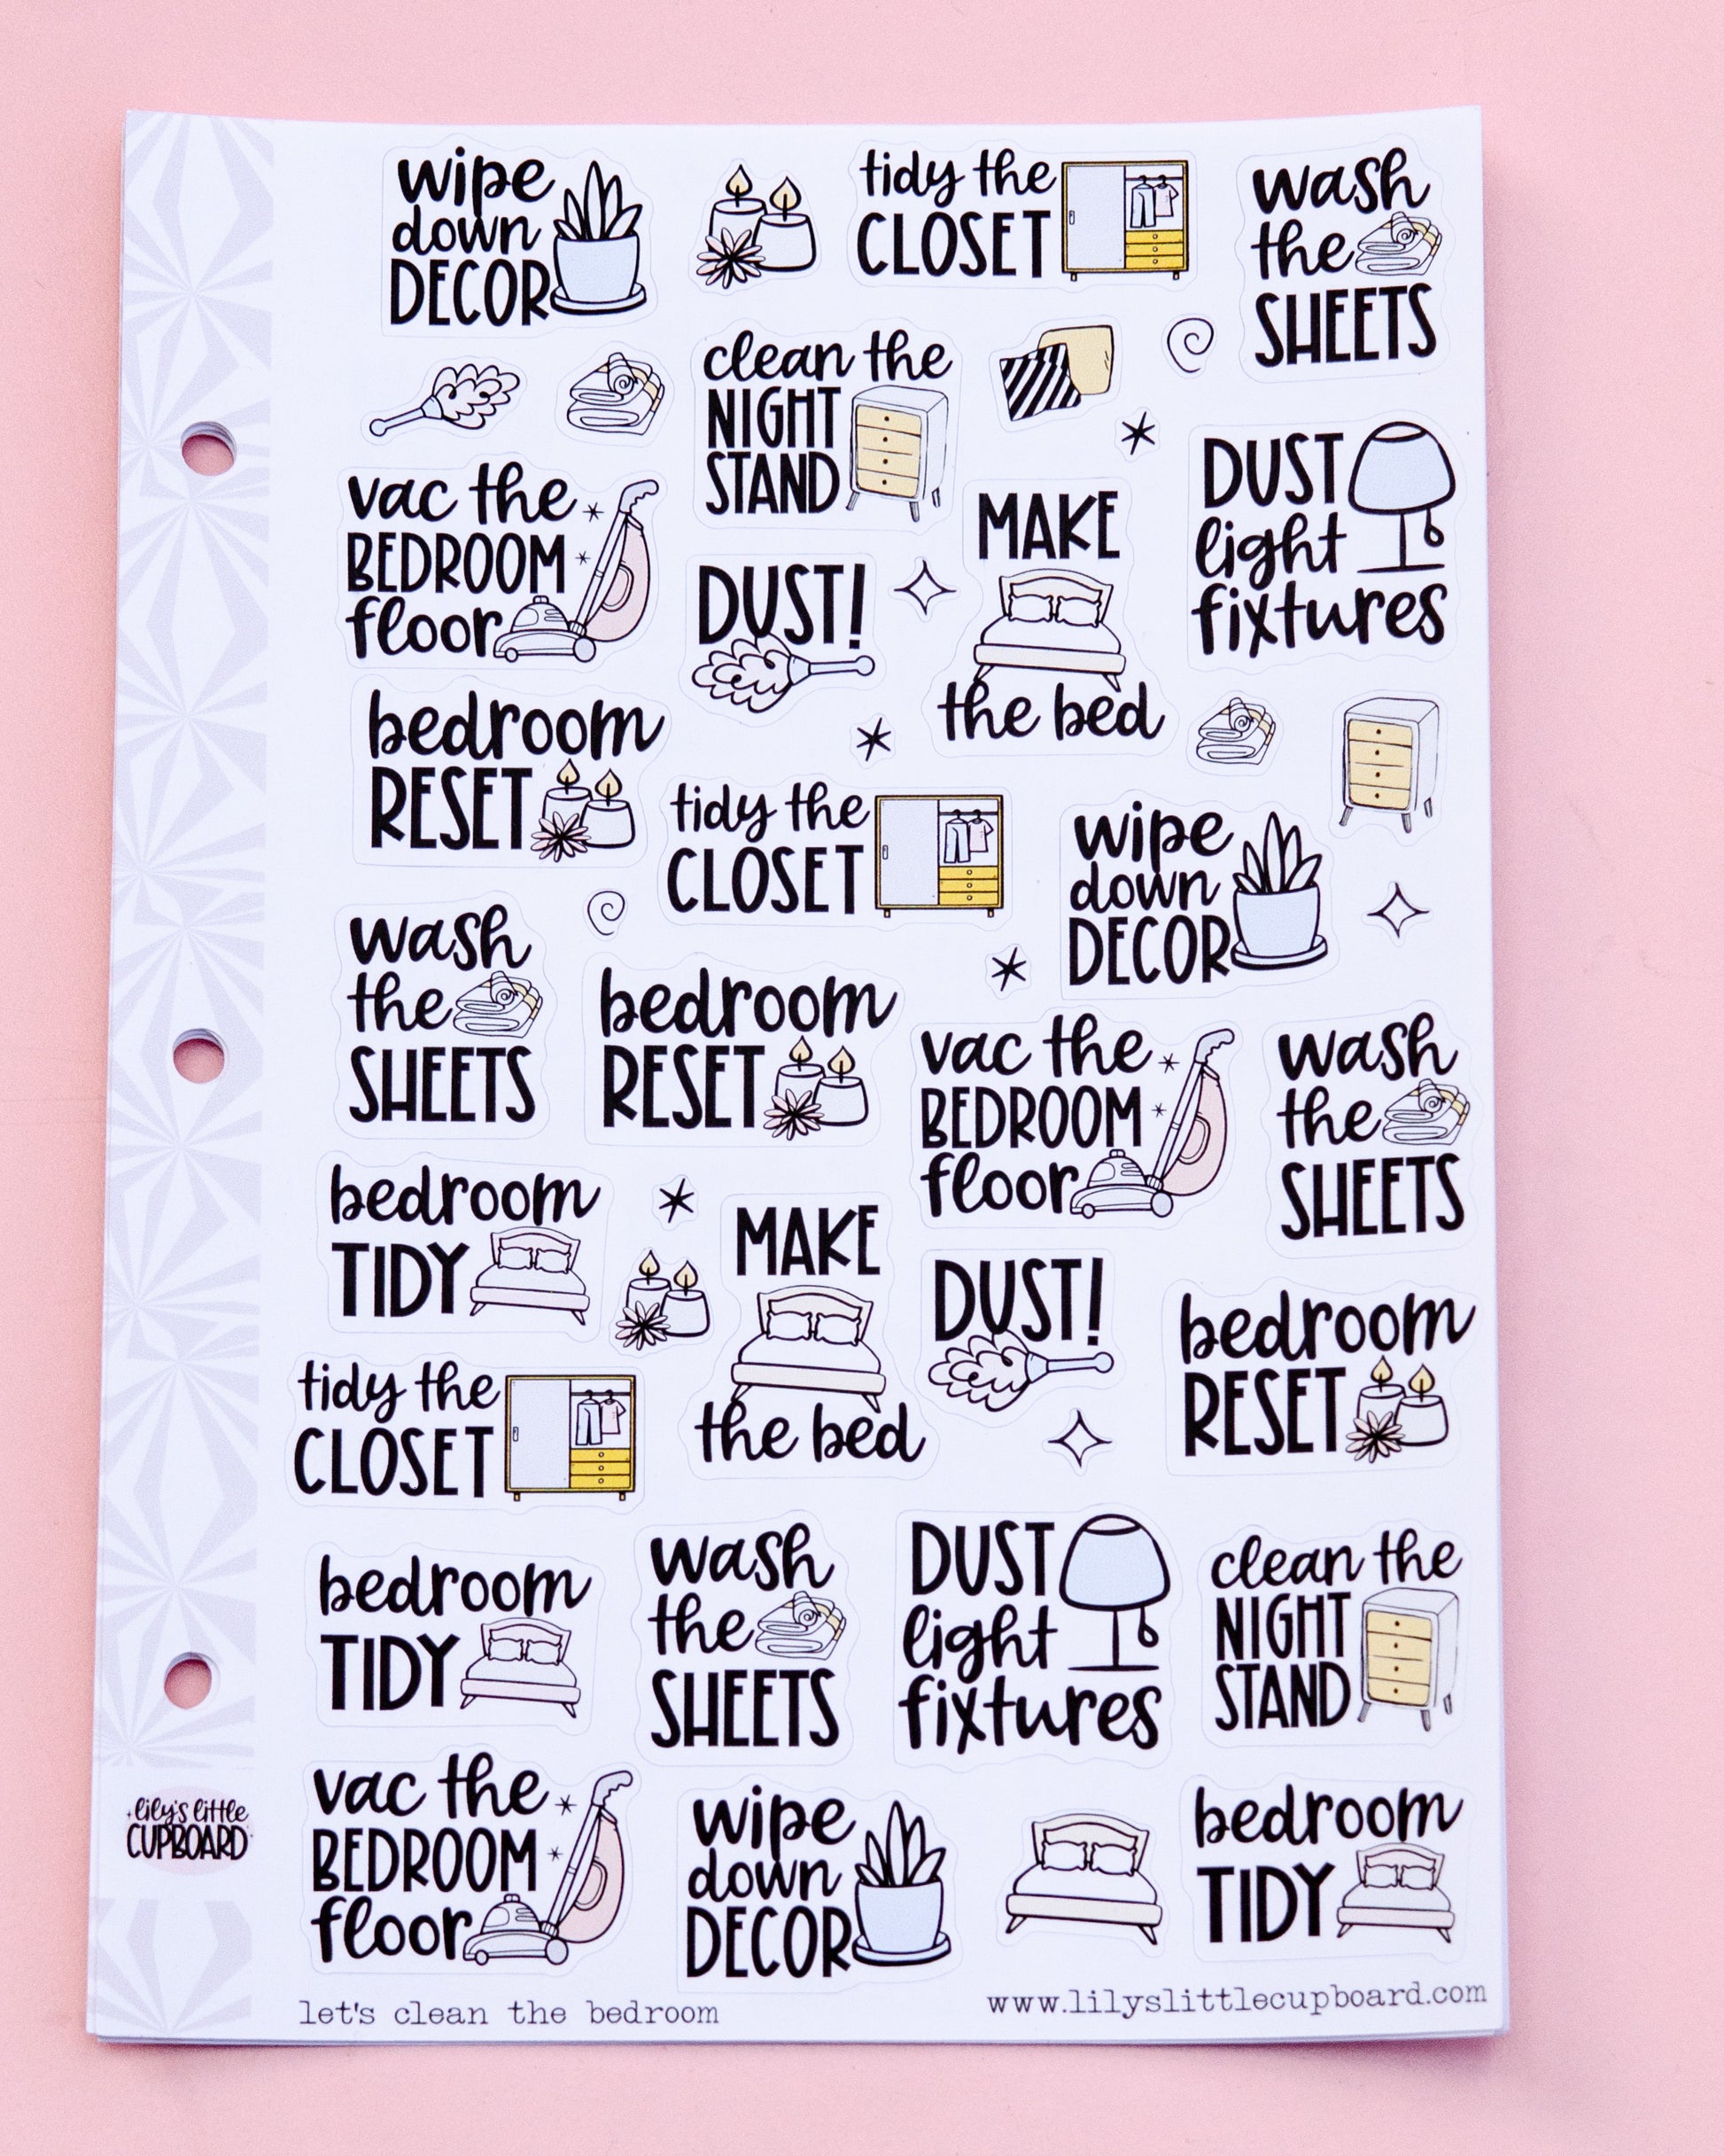 wipe
down
DECOR
tidy the
CLOSET
wash
the
SHEETS
clean the
NIGHT
STAND
vac the
BEDROOM
floor
DUST!
MAKE
the bed
DUST
light
fixtures
bedroom
RESET
tidy the
CLOSET
wipe
down
DECOR
wash
the
SHEETS
bedroom
RESET
vac the
BEDROOM
floor
wash
the
SHEETS
bedroom
TIDY
MAKE
the bed
DUST!
bedroom
RESET
tidy the
CLOSET
bedroom
TIDY
wash
the
SHEETS
DUST
light
fixtures
clean the
NIGHT
STAND
vac the
BEDROOM
floor
wipe
down
DECOR
bedroom
TIDY
lily's little
CUPBOARD
let's clean the bedroom
www.lilyslittlecupboard.com